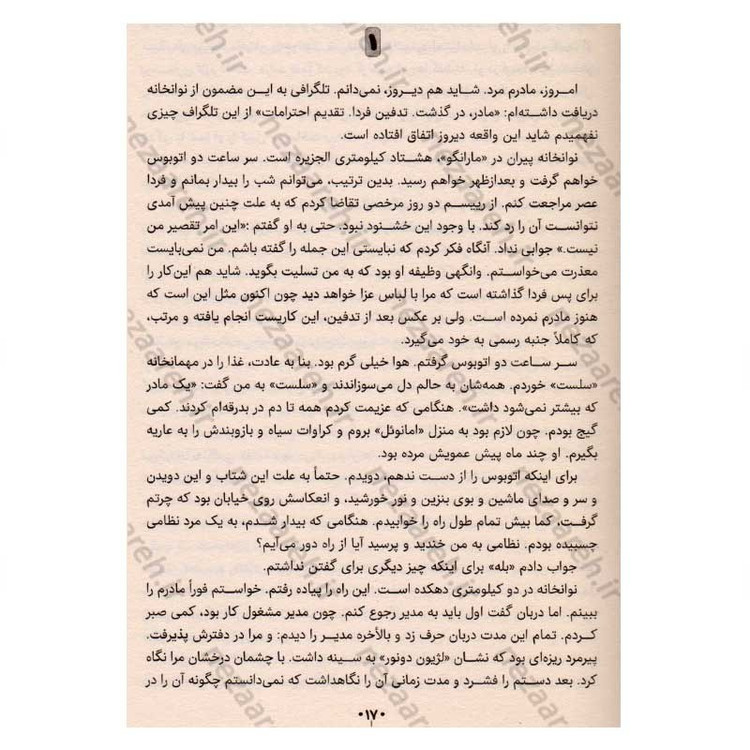 ۱
امروز، مادرم مرد. شاید هم دیروز، نمی‌دانم. تلگرافی به این مضمون از نوانخانه
دریافت داشته‌ام: «مادر، در گذشت. تدفین فردا. تقدیم احترامات» از این تلگراف چیزی
نفهمیدم شاید این واقعه دیروز اتفاق افتاده است.
نوانخانه پیران در «مارانگو»، هشتاد کیلومتری الجزیره است. سر ساعت دو اتوبوس
خواهم گرفت و بعدازظهر خواهم رسید. بدین ترتیب، می‌توانم شب را بیدار بمانم و فردا
عصر مراجعت کنم. از رییسم دو روز مرخصی تقاضا کردم که به علت چنین پیش آمدی
نتوانست آن را رد کند. با وجود این خشنود نبود. حتی به او گفتم :«این امر تقصیر من
نیست.» جوابی نداد. آنگاه فکر کردم که نبایستی این جمله را گفته باشم. من نمی‌بایست
معذرت می‌خواستم. وانگهی وظیفه او بود که به من تسلیت بگوید. شاید هم این‌کار را
برای پس فردا گذاشته است که مرا با لباس عزا خواهد دید چون اکنون مثل این است که
هنوز مادرم نمرده است. ولی بر عکس بعد از تدفین، این کاریست انجام یافته و مرتب،
که کاملاً جنبه رسمی به خود می‌گیرد.
سر ساعت دو اتوبوس گرفتم. هوا خیلی گرم بود. بنا به عادت، غذا را در مهمانخانه
«سلست» خوردم. همه‌شان به حالم دل می‌سوزاندند و «سلست» به من گفت: «یک مادر
که بیشتر نمی‌شود داشت». هنگامی که عزیمت کردم همه تا دم در بدرقه‌ام کردند. کمی
گیج بودم. چون لازم بود به منزل «امانوئل» بروم و کراوات سیاه و بازوبندش را به عاریه
بگیرم. او چند ماه پیش عمویش مرده بود.
برای اینکه اتوبوس را از دست ندهم، دویدم. حتماً به علت این شتاب و این دویدن
و سر و صدای ماشین و بوی بنزین و نور خورشید، و انعکاسش روی خیابان بود که چرتم
گرفت، کما بیش تمام طول راه را خوابیدم. هنگامی که بیدار شدم، به یک مرد نظامی
چسبیده بودم. نظامی به من خندید و پرسید آیا از راه دور می‌آیم؟
جواب دادم «بله» برای اینکه چیز دیگری برای گفتن نداشتم.
نوانخانه در دو کیلومتری دهکده است. این راه را پیاده رفتم. خواستم فوراً مادرم را
ببینم. اما دربان گفت اول باید به مدیر رجوع کنم. چون مدیر مشغول کار بود، کمی صبر
کردم. تمام این مدت دربان حرف زد و بالأخره مدیر را دیدم: و مرا در دفترش پذیرفت.
پیرمرد ریزه‌ای بود که نشان «لژیون دونور» به سینه داشت. با چشمان درخشان مرا نگاه
کرد. بعد دستم را فشرد و مدت زمانی آن را نگاهداشت که نمی‌دانستم چگونه آن را در
۰۱۷۰
nezaareh.ir